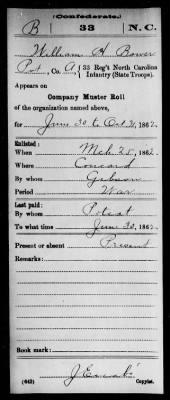 (Confederate.)
B 33 N.C.
William H Bower
Pvt, Co. A, 33 Reg't North Carolina
Infantry (State Troops).
Appears on
Company Muster Roll
of the organization named above,
for June 30 to Oct 31, 1862.
Enlisted:
When Mch 25, 1862.
Where Concord
By whom Gibson
Period War
Last paid:
By whom Poteat
To what time June 30, 1862.
Present or absent Present
Remarks:
Book mark:
(642)
Copyist.